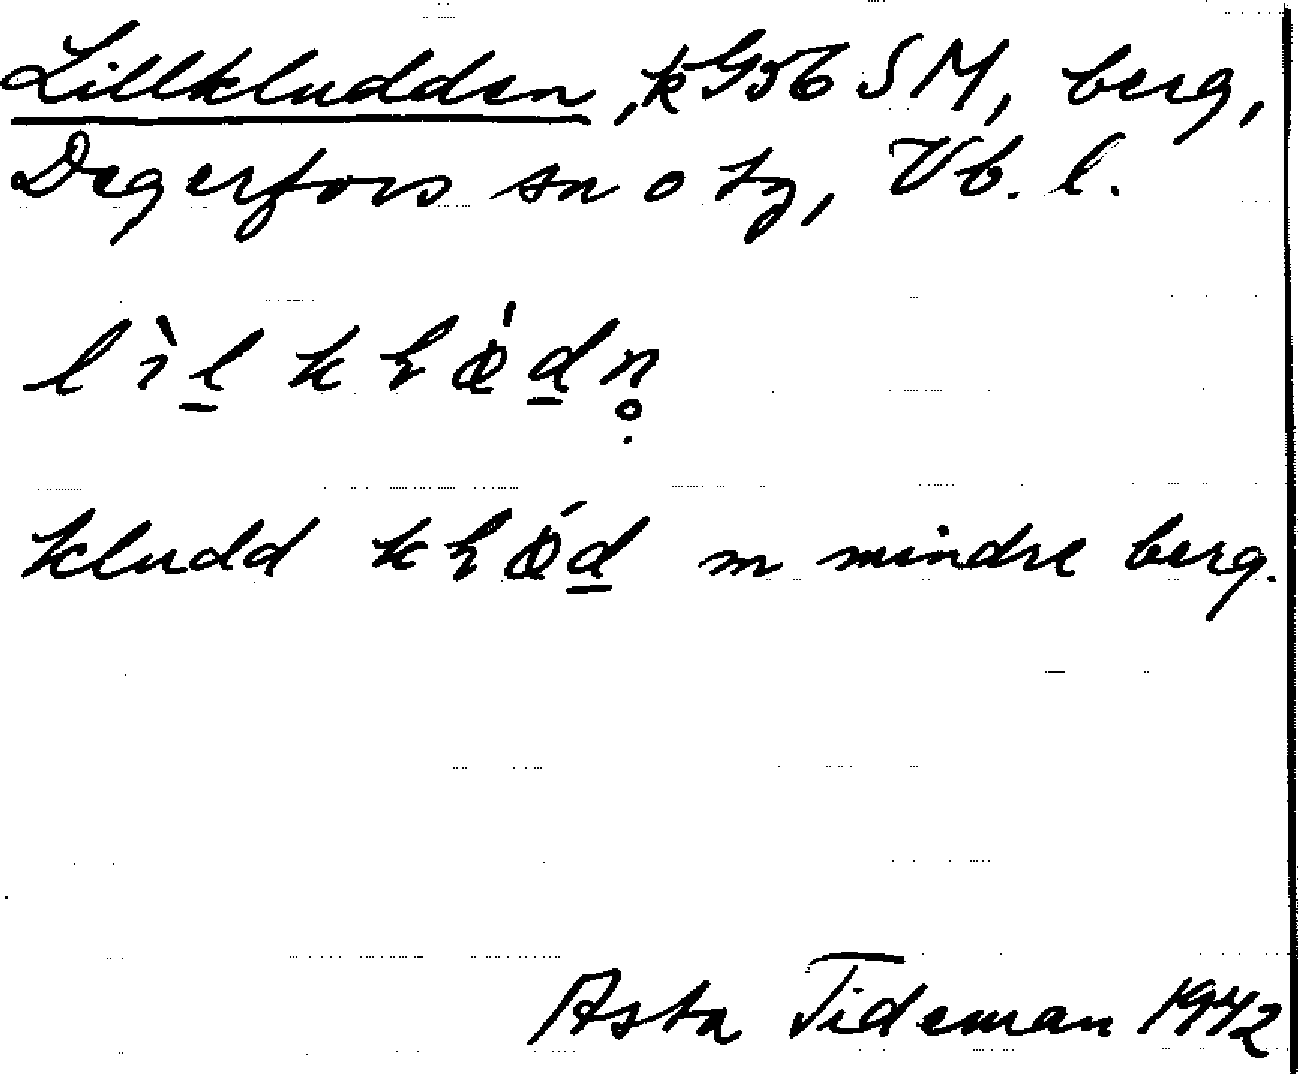 Lillkludden, kG56 SM, berg,
Degerfors sn o tg, Vb. l.
kludd m mindre berg.
Asta Tideman 1942